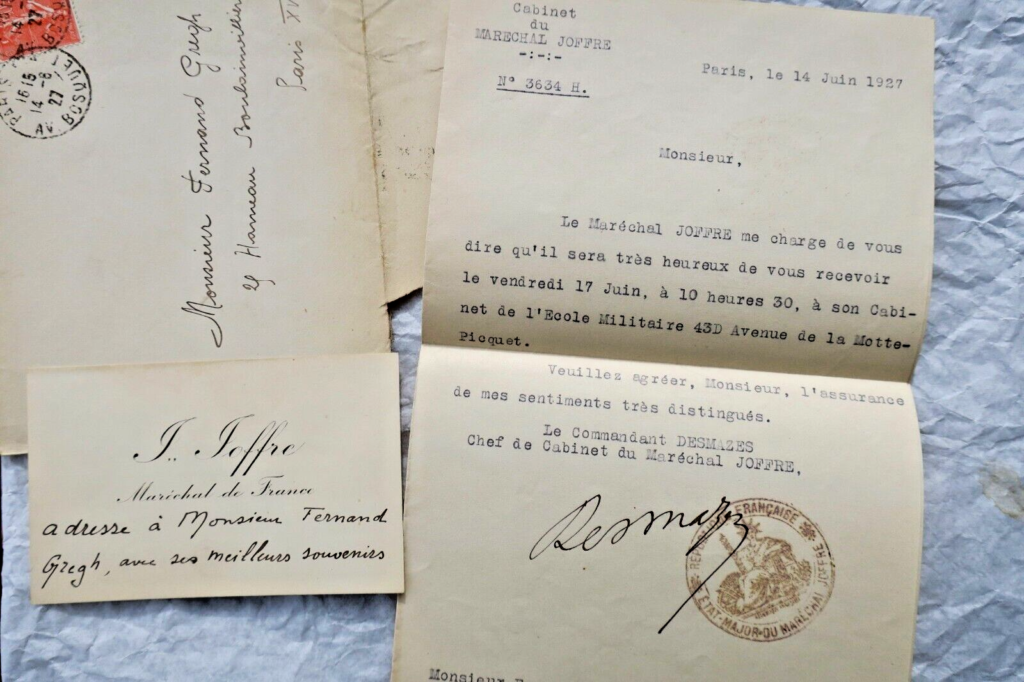 PARIS
16 15
14 - 8
27
AV. BOSQUET
Monsieur Fernand Gregh
Hameau Boulainvilliers
Paris XV
J. Joffre
Maréchal de France
adresse à Monsieur Fernand
Gregh, avec ses meilleurs souvenirs
Cabinet
du
MARECHAL JOFFRE
-:-:-
N° 3634 H.
Paris, le 14 Juin 1927
Monsieur,
Le Maréchal JOFFRE me charge de vous
dire qu'il sera très heureux de vous recevoir
le vendredi 17 Juin, à 10 heures 30, à son Cabi-
net de l'Ecole Militaire 43D Avenue de la Motte-
Picquet.
Veuillez agréer, Monsieur, l'assurance
de mes sentiments très distingués.
Le Commandant DESMAZES
Chef de Cabinet du Maréchal JOFFRE,
Desmazes
REPUBLIQUE FRANÇAISE
ETAT-MAJOR DU MARÉCHAL JOFFRE
Monsieur